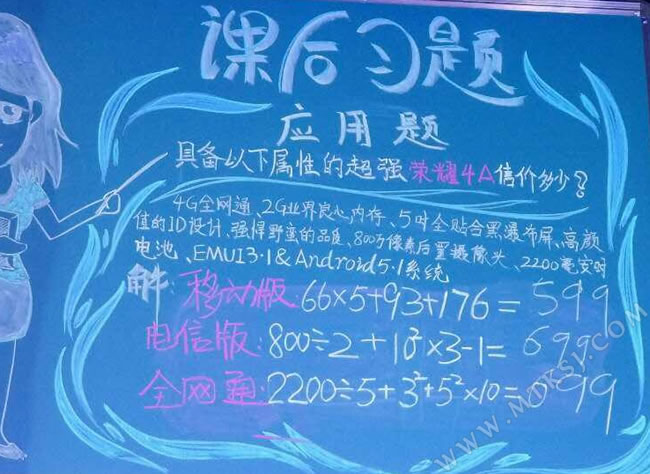 课后习题
应用题
具备以下属性的超强荣耀4A售价多少?
4G全网通、2G业界良心内存、5吋全贴合黑瀑布屏、高颜
值的ID设计、强悍野蛮的品质、800万像素后置摄像头、2200毫安时
电池、EMUI3.1&Android5.1系统
解:移动版:66×5+93+176=599
电信版:800÷2+10²×3-1=699
全网通:2200÷5+3²+5²×10=699
WWW.MDKSY.COM